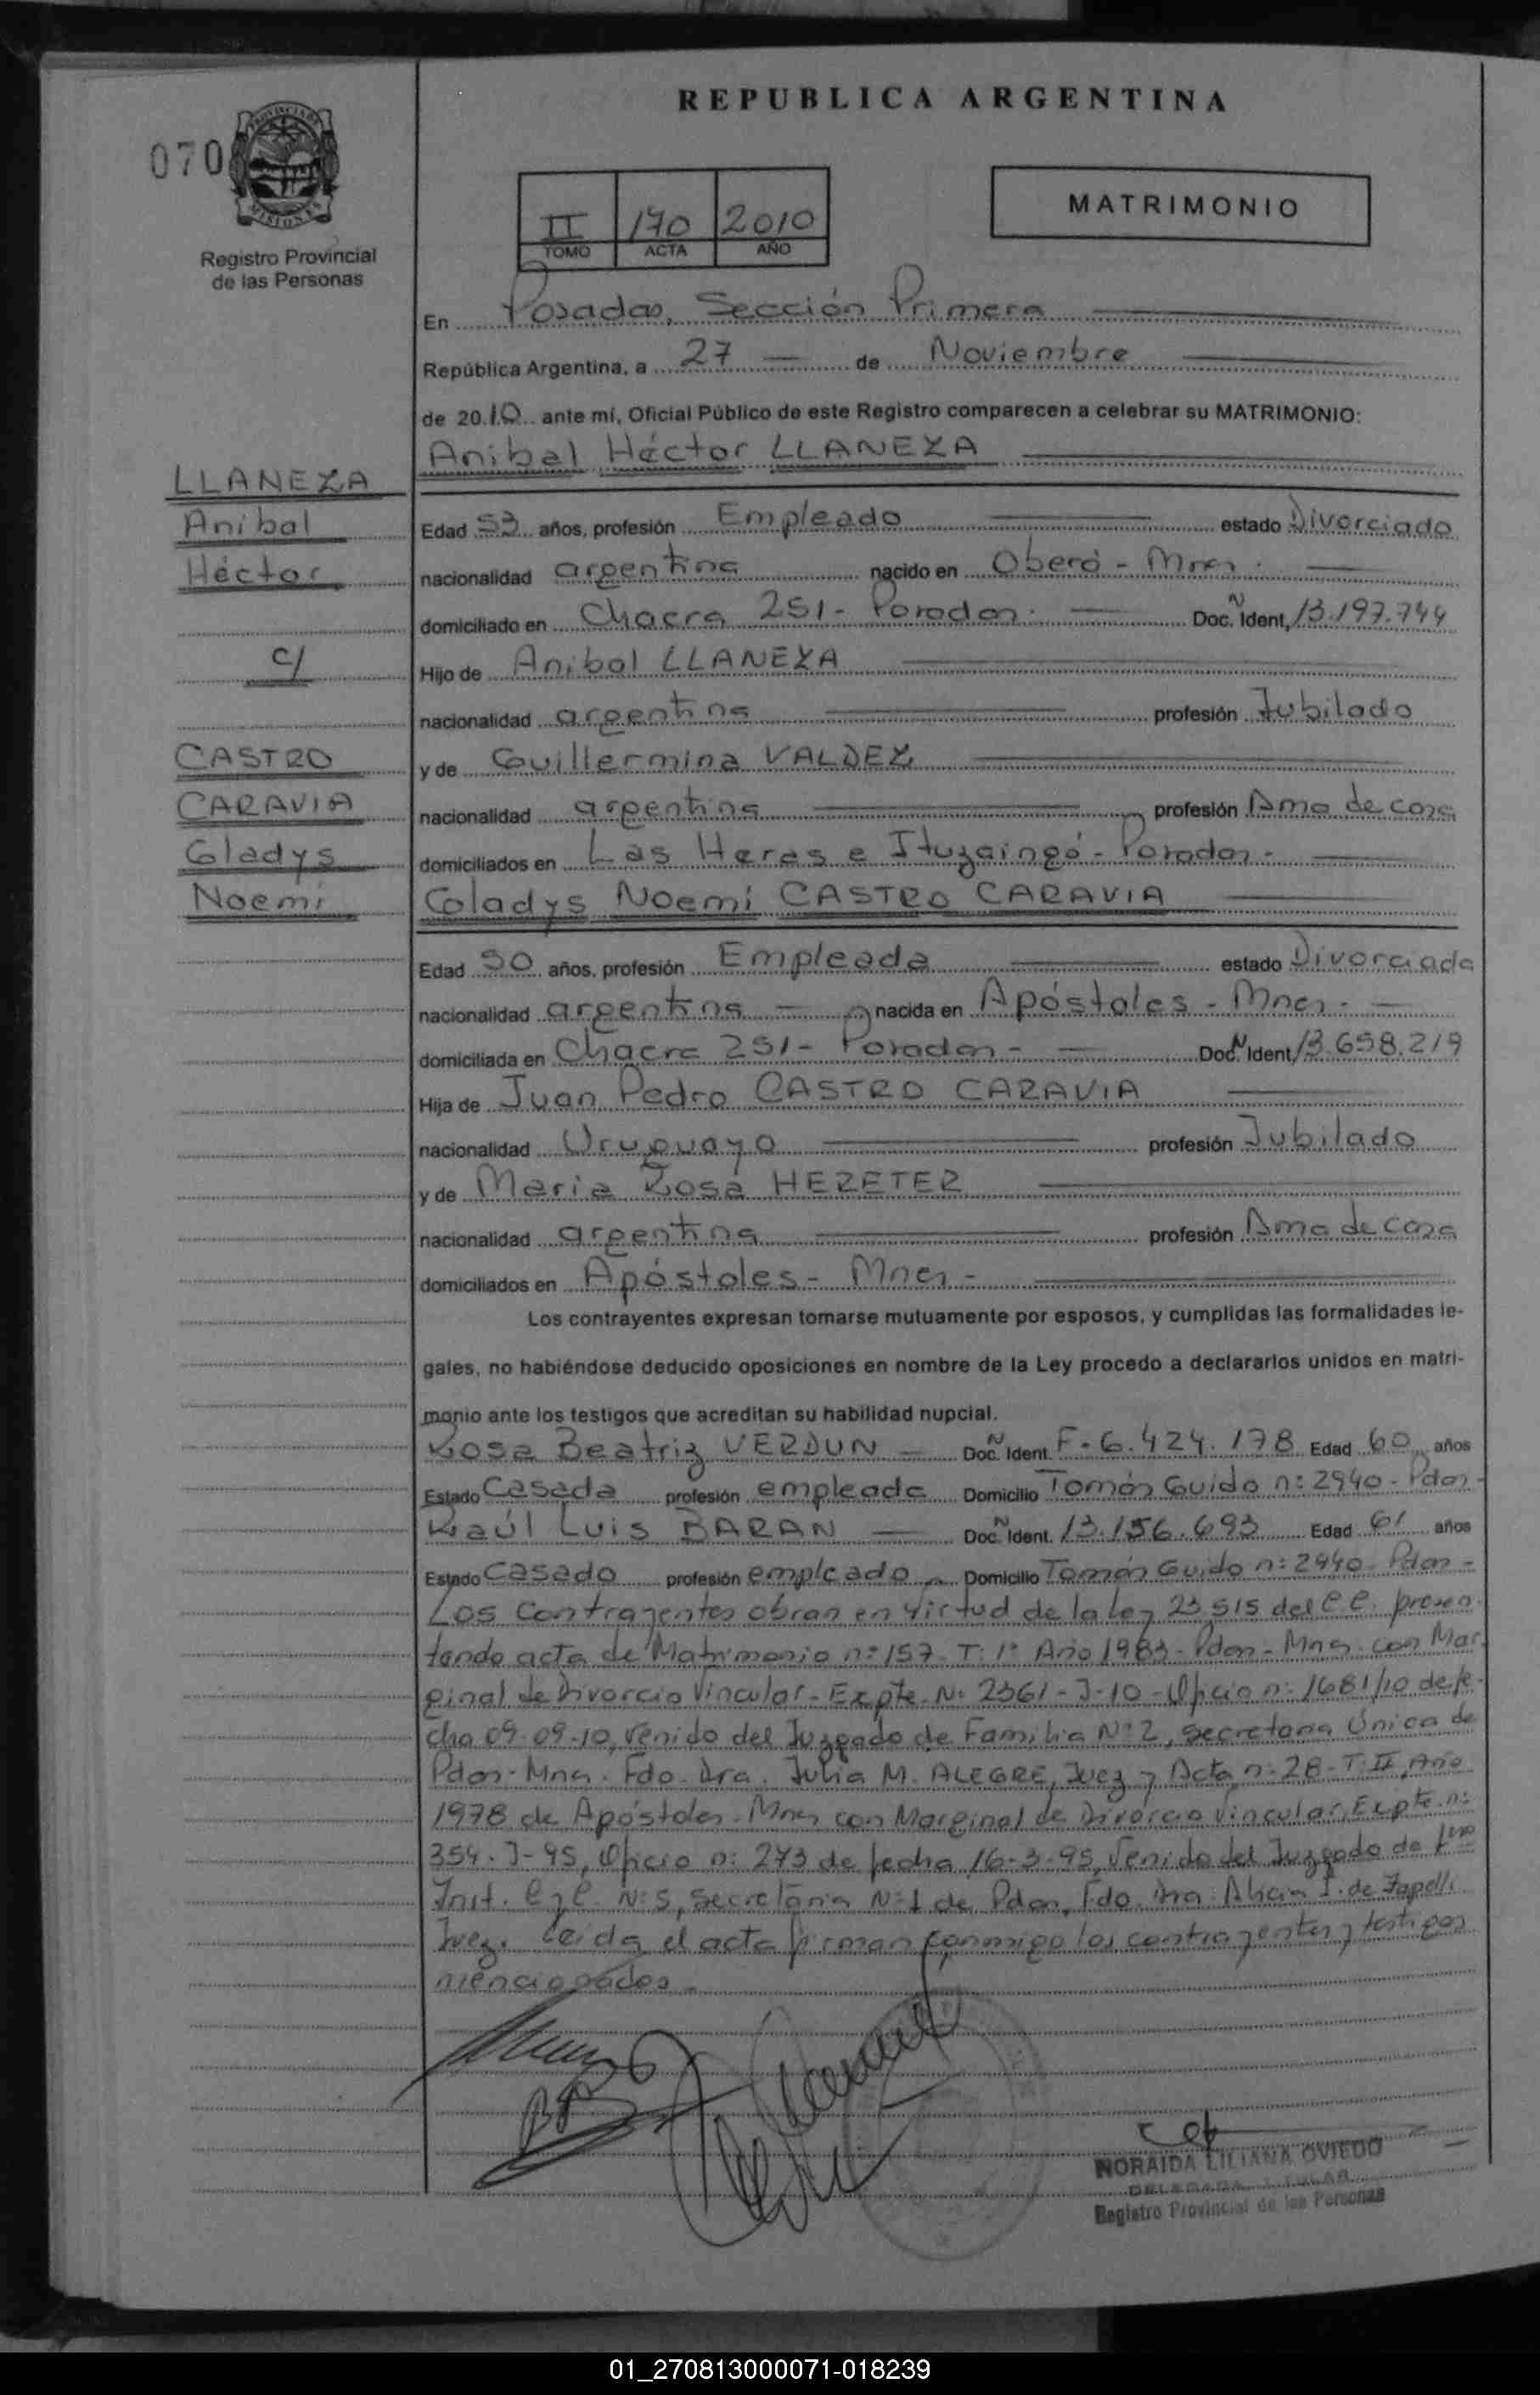 REPUBLICA ARGENTINA
070
PROVINCIA DE
MISIONES
Registro Provincial
de las Personas
II 170 2010
TOMO ACTA AÑO
MATRIMONIO
En Posadas, Sección Primera
República Argentina, a 27 de Noviembre
de 2010 ante mi, Oficial Público de este Registro comparecen a celebrar su MATRIMONIO:
Anibal Héctor LLANEZA
LLANEZA
Anibal
Héctor
c/
CASTRO
CARAVIA
Gladys
Noemi
Edad 53 años, profesión Empleado estado Divorciado
nacionalidad argentina nacido en Oberá - Mnes.
domiciliado en Chacra 251 - Posadas. Doc. N Ident, 13.197.744
Hijo de Anibal LLANEZA
nacionalidad argentina profesión Jubilado
y de Guillermina VALDEZ
nacionalidad argentina profesión Ama de casa
domiciliados en Las Heras e Ituzaingó - Posadas -
Gladys Noemi CASTRO CARAVIA
Edad 50 años, profesión Empleada estado Divorciada
nacionalidad argentina nacida en Apóstoles - Mnes -
domiciliada en Chacra 251 - Posadas - Doc. N Ident, 13.658.219
Hija de Juan Pedro CASTRO CARAVIA
nacionalidad Uruguayo profesión Jubilado
y de Maria Rosa HERETER
nacionalidad argentina profesión Ama de casa
domiciliados en Apóstoles - Mnes -
Los contrayentes expresan tomarse mutuamente por esposos, y cumplidas las formalidades le-
gales, no habiéndose deducido oposiciones en nombre de la Ley procedo a declararlos unidos en matri-
monio ante los testigos que acreditan su habilidad nupcial.
Rosa Beatriz VERDUN Doc. N Ident. F - 6.424.178 Edad 60 años
Estado Casada profesión empleada Domicilio Tomás Guido n: 2940 - Pdas -
Raúl Luis BARAN Doc. N Ident. 13.156.693 Edad 61 años
Estado Casado profesión empleado Domicilio Tomás Guido n: 2940 - Pdas -
Los Contrayentes obran en virtud de la ley 23.515 del C.C. presen-
tando acta de Matrimonio n: 157 - T: 1° Año 1983 - Pdas - Mnes. con Mar-
ginal de Divorcio Vincular - Expte. N: 2361 - J - 10 - Oficio n: 1681/10 de fe-
cha 09-09-10, Venido del Juzgado de Familia N: 2, Secretaria Única de
Pdas - Mnes. Fdo. Dra. Julia M. ALEGRE, Juez y Acta n: 28 - T: II, Año
1978 de Apóstoles - Mnes con Marginal de Divorcio Vincular, Expte. n:
354 - J - 95, Oficio n: 273 de fecha 16-3-95, Venido del Juzgado de 1ra
Inst. C y C. N: 5, Secretaria N: 1 de Pdas, Fdo. Dra. Alicia I. de
Juez. Leida el acta firman conmigo los contrayentes y testigos
mencionados -
NORAIDA LILIANA OVIEDO
DELEGADA TITULAR
Registro Provincial de las Personas
01_270813000071-018239